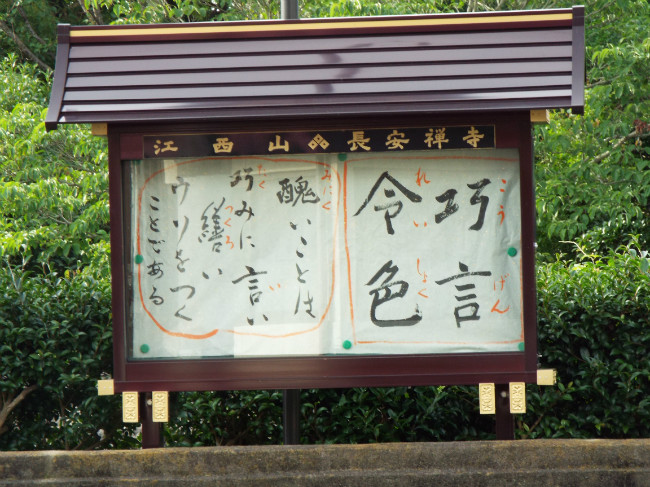 江西山 長安禅寺
巧言
こうげん
令色
れいしょく
醜いことは
みにく
巧みに言い
たく い
繕い
つくろ
ウソをつく
ことである